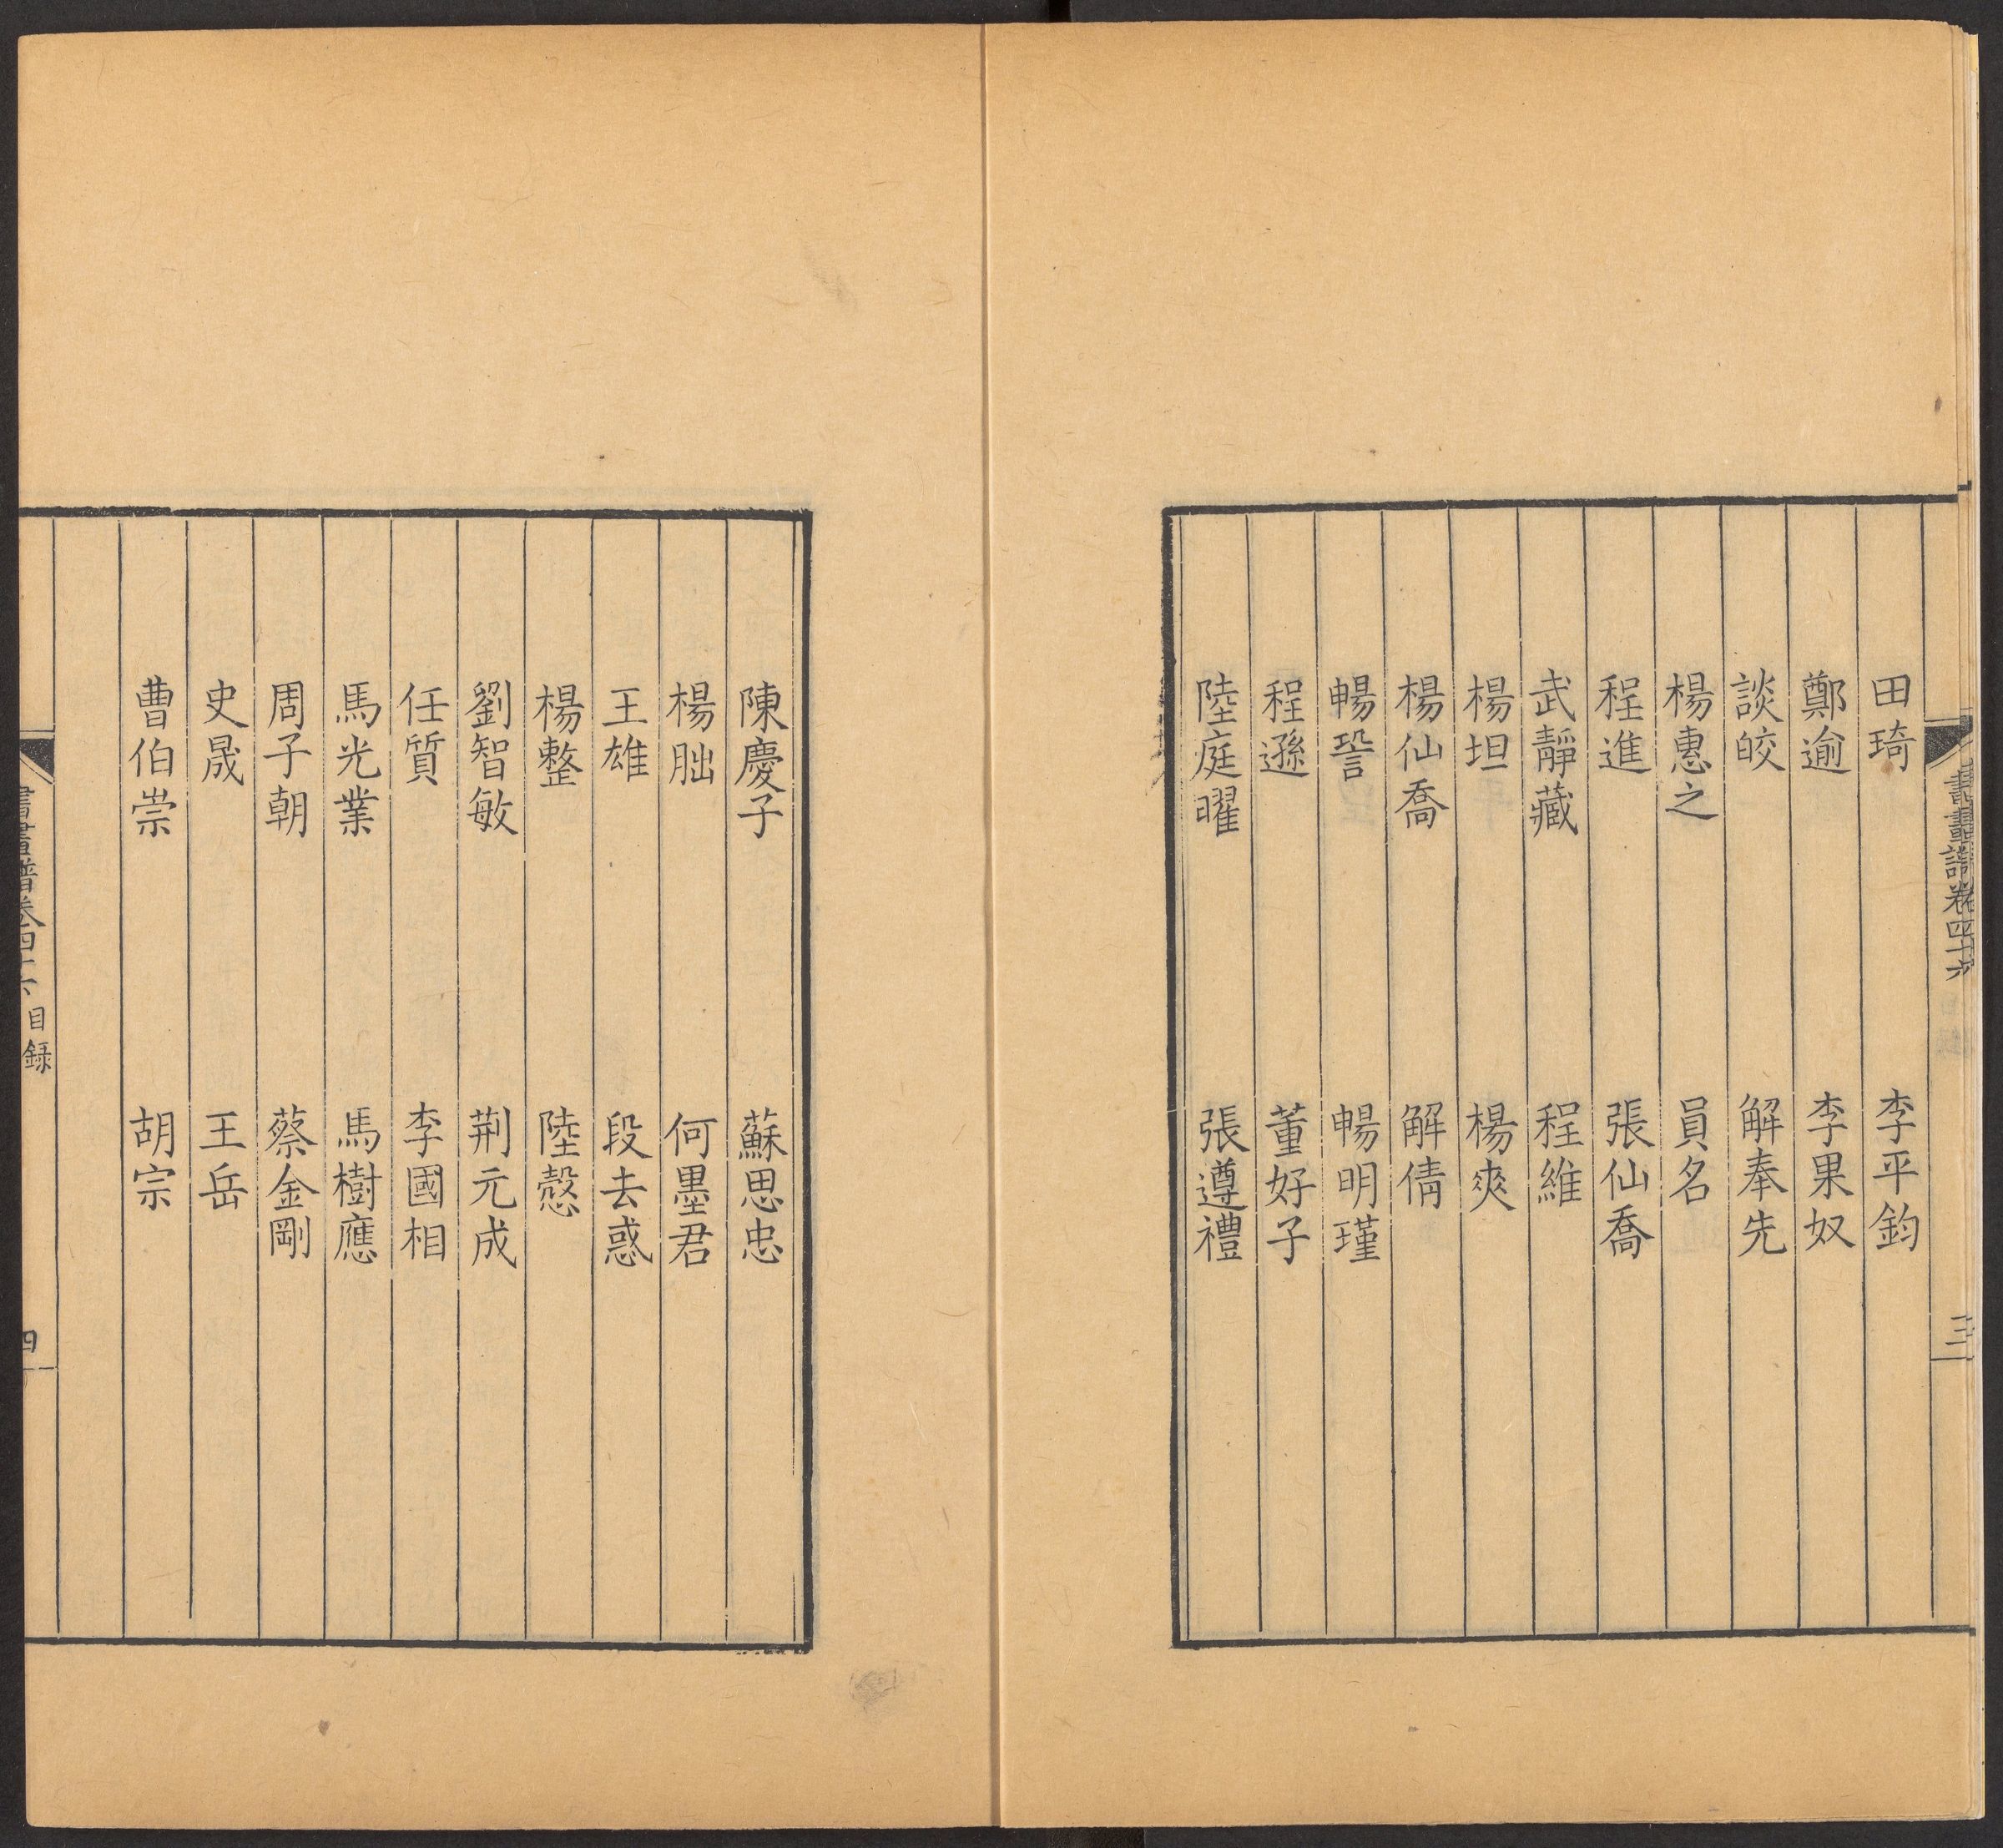 書畫譜卷四十六
三
田琦 李平鈞
鄭逾 李果奴
談皎 解奉先
楊惠之 員名
程進 張仙喬
武靜藏 程維
楊坦 楊爽
楊仙喬 解倩
暢䛒 暢明瑾
程遜 董好子
陸庭曜 張遵禮
陳慶子 蘇思忠
楊朏 何墨君
王雄 段去惑
楊整 陸慤
劉智敏 荆元成
任質 李國相
馬光業 馬樹應
周子朝 蔡金剛
史晟 王岳
曹伯崇 胡宗
書畫譜卷四十六 目録
四